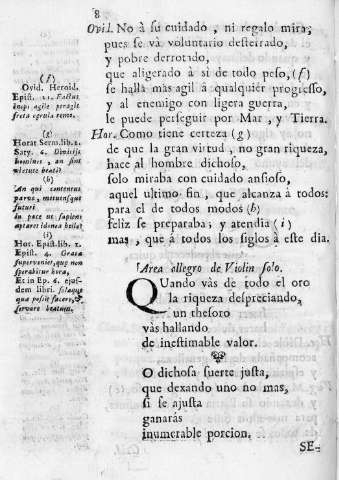 8
Ovil. No à su cuidado, ni regalo mira;
pues se và voluntario desterrado,
y pobre derrotado,
que aligerado à si de todo peso, (f)
se halla mas agil à qualquièr progresso,
y al enemigo con ligera guerra,
le puede perseguir por Mar, y Tierra.
Hor. Como tiene certeza (g)
de que la gran virtud, no gran riqueza,
hace al hombre dichoso,
solo miraba con cuidado ansioso,
aquel ultimo fin, que alcanza à todos:
para el de todos modos (h)
feliz se preparaba, y atendia (i)
mas, que à todos los siglos à este dia.
(f)
Ovid. Heroid.
Epist.
agili peragit
freta remo.
(g)
Horat Serm. lib. 2.
Saty. 6. Divitijs
homines, an sint
virtute beati?
(h)
An qui contentus
parvo, metuensque
futuri
In pace ut sapiens
aptaret idonea bello?
(i)
Hor. Epist. lib. 1.
Epist. 4. Grata
superveniet, quę non
sperabitur hora,
Et in Ep. 6. ejus-
dem libri. solaque
quæ possit facere, &
servare beatum.
Area allegro de Violin solo.
QUando vàs de todo el oro
la riqueza despreciando,
un thesoro
vàs hallando
de inestimable valor.
O dichosa suerte justa,
que dexando uno no mas,
si se ajusta
ganaràs
inumerable porcion.
SE-